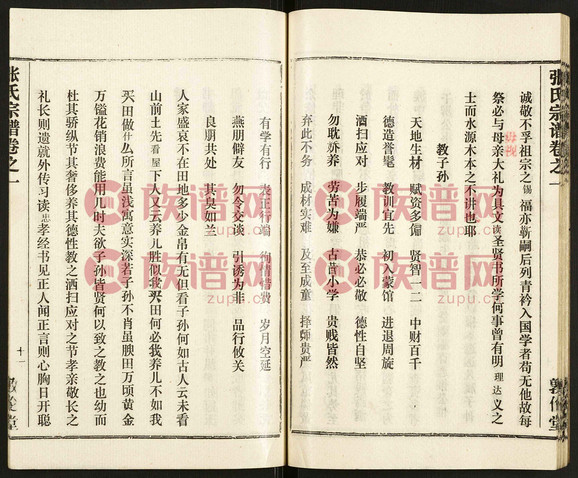 张氏宗谱卷之一
诚敬不孚祖宗之锡福亦靳嗣后列青衿入国学者苟无他故每
祭必与毋亲大礼为具文读圣贤书所学何事曾有明理达义之
毋视
士而水源木本之不讲也耶
教子孙
天地生材 赋资多偏 贤智一二 中财百千
德造誉髦 教训宜先 初入蒙馆 进退周旋
洒扫应对 步履端严 恭必必敬 德性自坚
勿耽骄养 劳苦为嫌 古昔小学 贵贱皆然
弃此不务 成材实难 及至成童 择师贵严
敦伦堂
有学有行 表正行端 徇情惜费 岁月空延
燕朋僻友 勿令交谈 引诱为非 品行攸关
良朋共处 其臭如兰
人家盛衰不在田地多少金帛有无但看子孙何如古人云未看
山前土先看屋下人又云养儿胜似我买田何必我养儿不如我
买田做什么所言虽浅寓意实深若子孙不肖虽腴田万顷黄金
万镒花销浪费能用几时夫欲子孙皆贤何以致之教之也幼而
杜其骄纵节其奢侈养其德性教之洒扫应对之节孝亲敬长之
礼长则遣就外传习读忠孝经书见正人闻正言则心胸日开聪
张氏宗谱卷之一
十一
敦伦堂
族谱网
zupu.cn
族谱网
zupu.cn